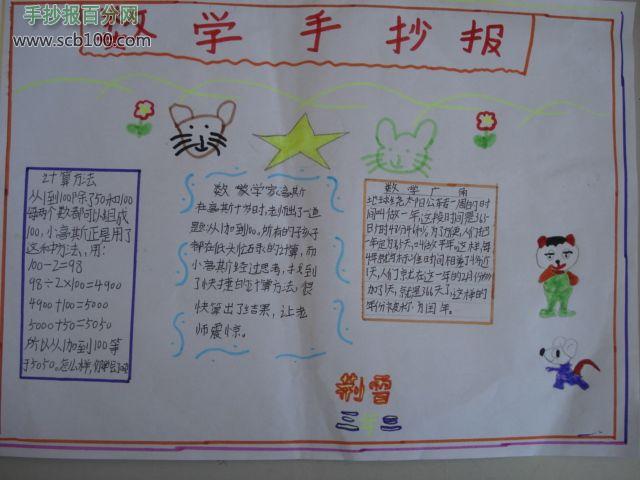 手抄报百分网
www.scb100.com
数学手抄报
计算方法
从1到100除了50和100
每两个数都可以组成
100,小高斯正是用了
这种方法,用:
100-2=98
98÷2×100=4900
4900+100=5000
5000+50=5050
所以从1加到100等
于5050.怎么样,
数学家高斯
在高斯十岁时,老师出了一道
题:从1加到100,所有的子孩子
都在低头
小高斯经过思考,找到
了快捷的计算方法,很
快算出了结果,让老
师震惊。
数学广角
地球绕太阳公转一周的时
时间叫做一年,这段时间是365
日5时48分46秒,为了方便,人们把
一年定为365天,叫做平年,这样,每
4年就
1天,人们就在这一年的2月份
加了1天,就是366天了,这样的
年份被称为闰年。
荆雪
三年三